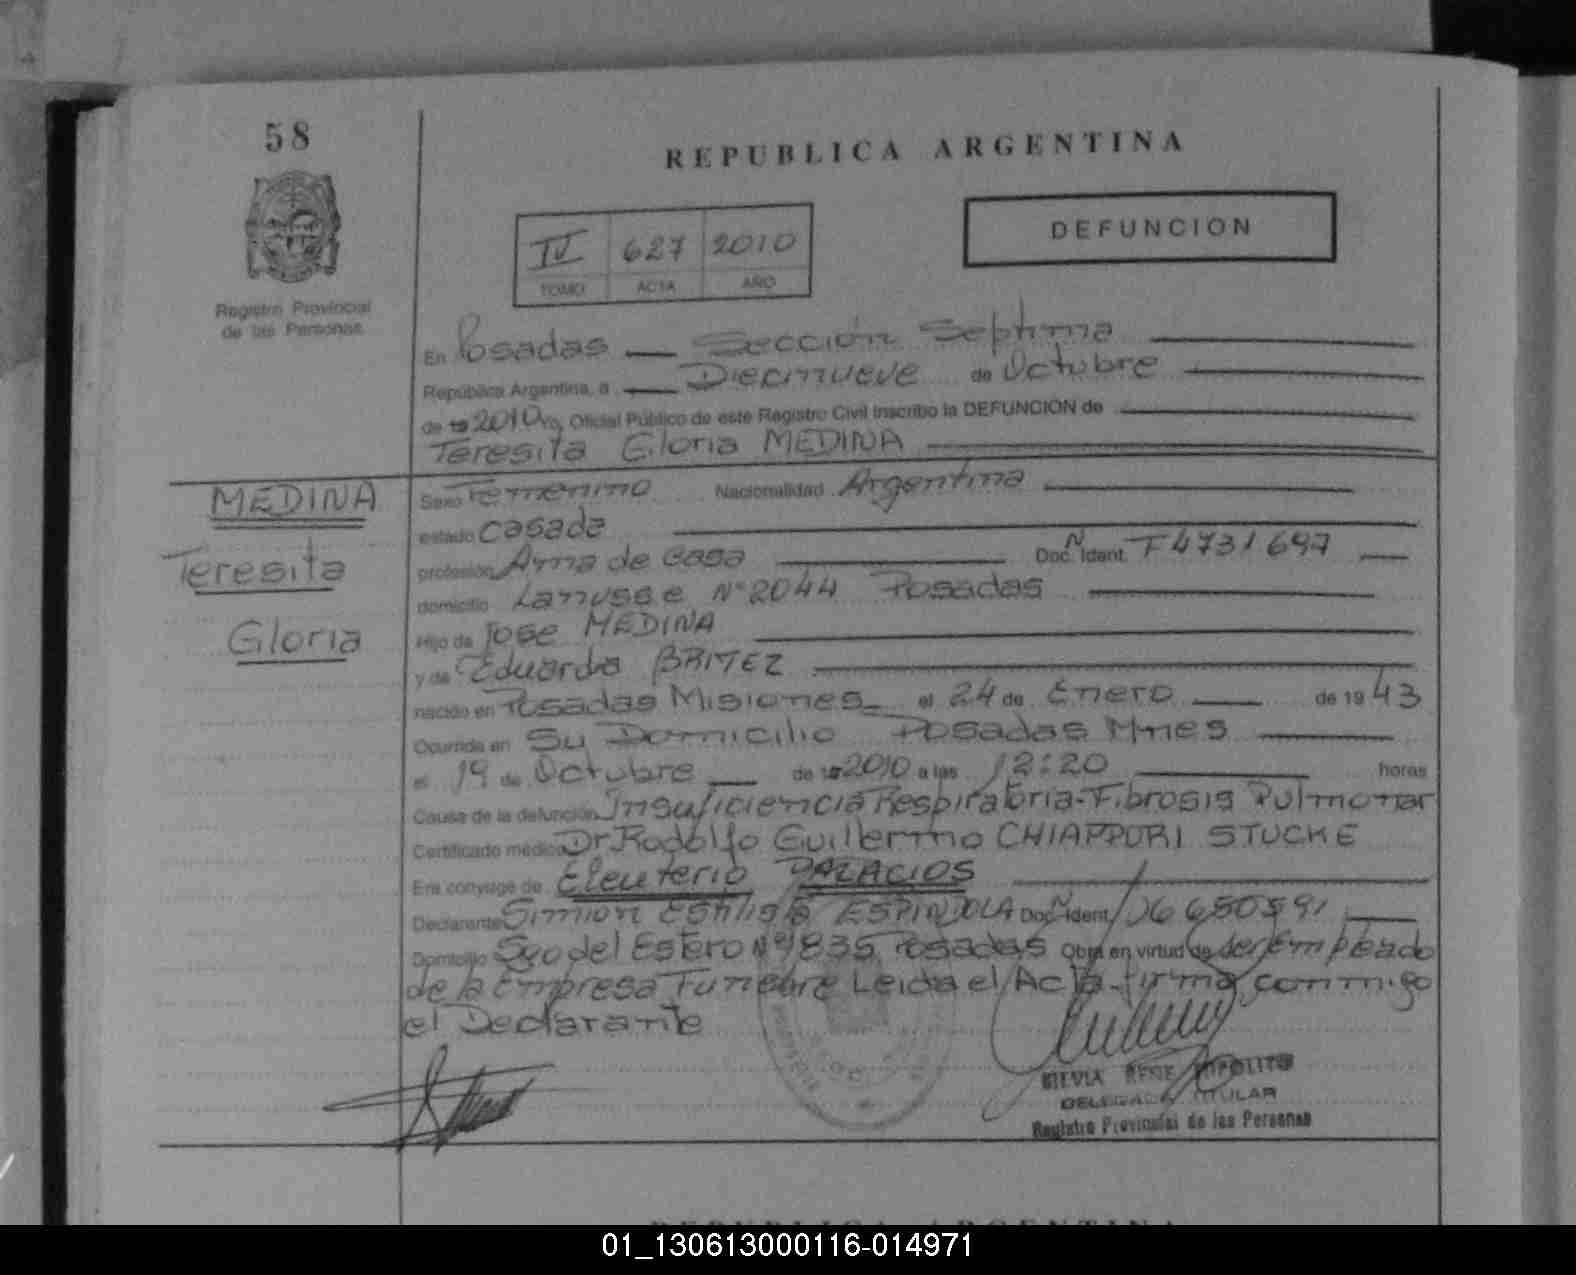 58
REPUBLICA ARGENTINA
Registro Provincial
de las Personas
IV 627 2010
TOMO ACTA AÑO
DEFUNCION
En Posadas Sección Septima
República Argentina, a Diecinueve de Octubre
de 19 2010 yo, Oficial Público de este Registro Civil inscribo la DEFUNCION de
Teresita Gloria MEDINA
MEDINA
Teresita
Gloria
Sexo Femenino Nacionalidad Argentina
estado Casada
profesión Ama de Casa Doc. N Ident. F4731697
domicilio Lanusse N° 2044 Posadas
Hijo de Jose MEDINA
y de Eduarda BRITEZ
nacido en Posadas Misiones el 24 de Enero de 19 43
Ocurrida en Su Domicilio Posadas Mnes
el 19 de Octubre de 19 2010 a las 12:20 horas
Causa de la defunción Insuficiencia Respiratoria-Fibrosis Pulmonar
Certificado médico Dr. Rodolfo Guillermo CHIAPPORI STUCKE
Era conyuge de Eleuterio PALACIOS
Declarante Simion ESPINDOLA Doc. N Ident. 06650591
Domicilio Sgo del Estero N° 1835 Posadas Obra en virtud de ser Empleado
de la Empresa Funebre Leida el Acta firma conmigo
el Declarante
SILVIA RENE HIPOLITO
DELEGADA TITULAR
Registro Provincial de las Personas
REPUBLICA ARGENTINA
01_130613000116-014971